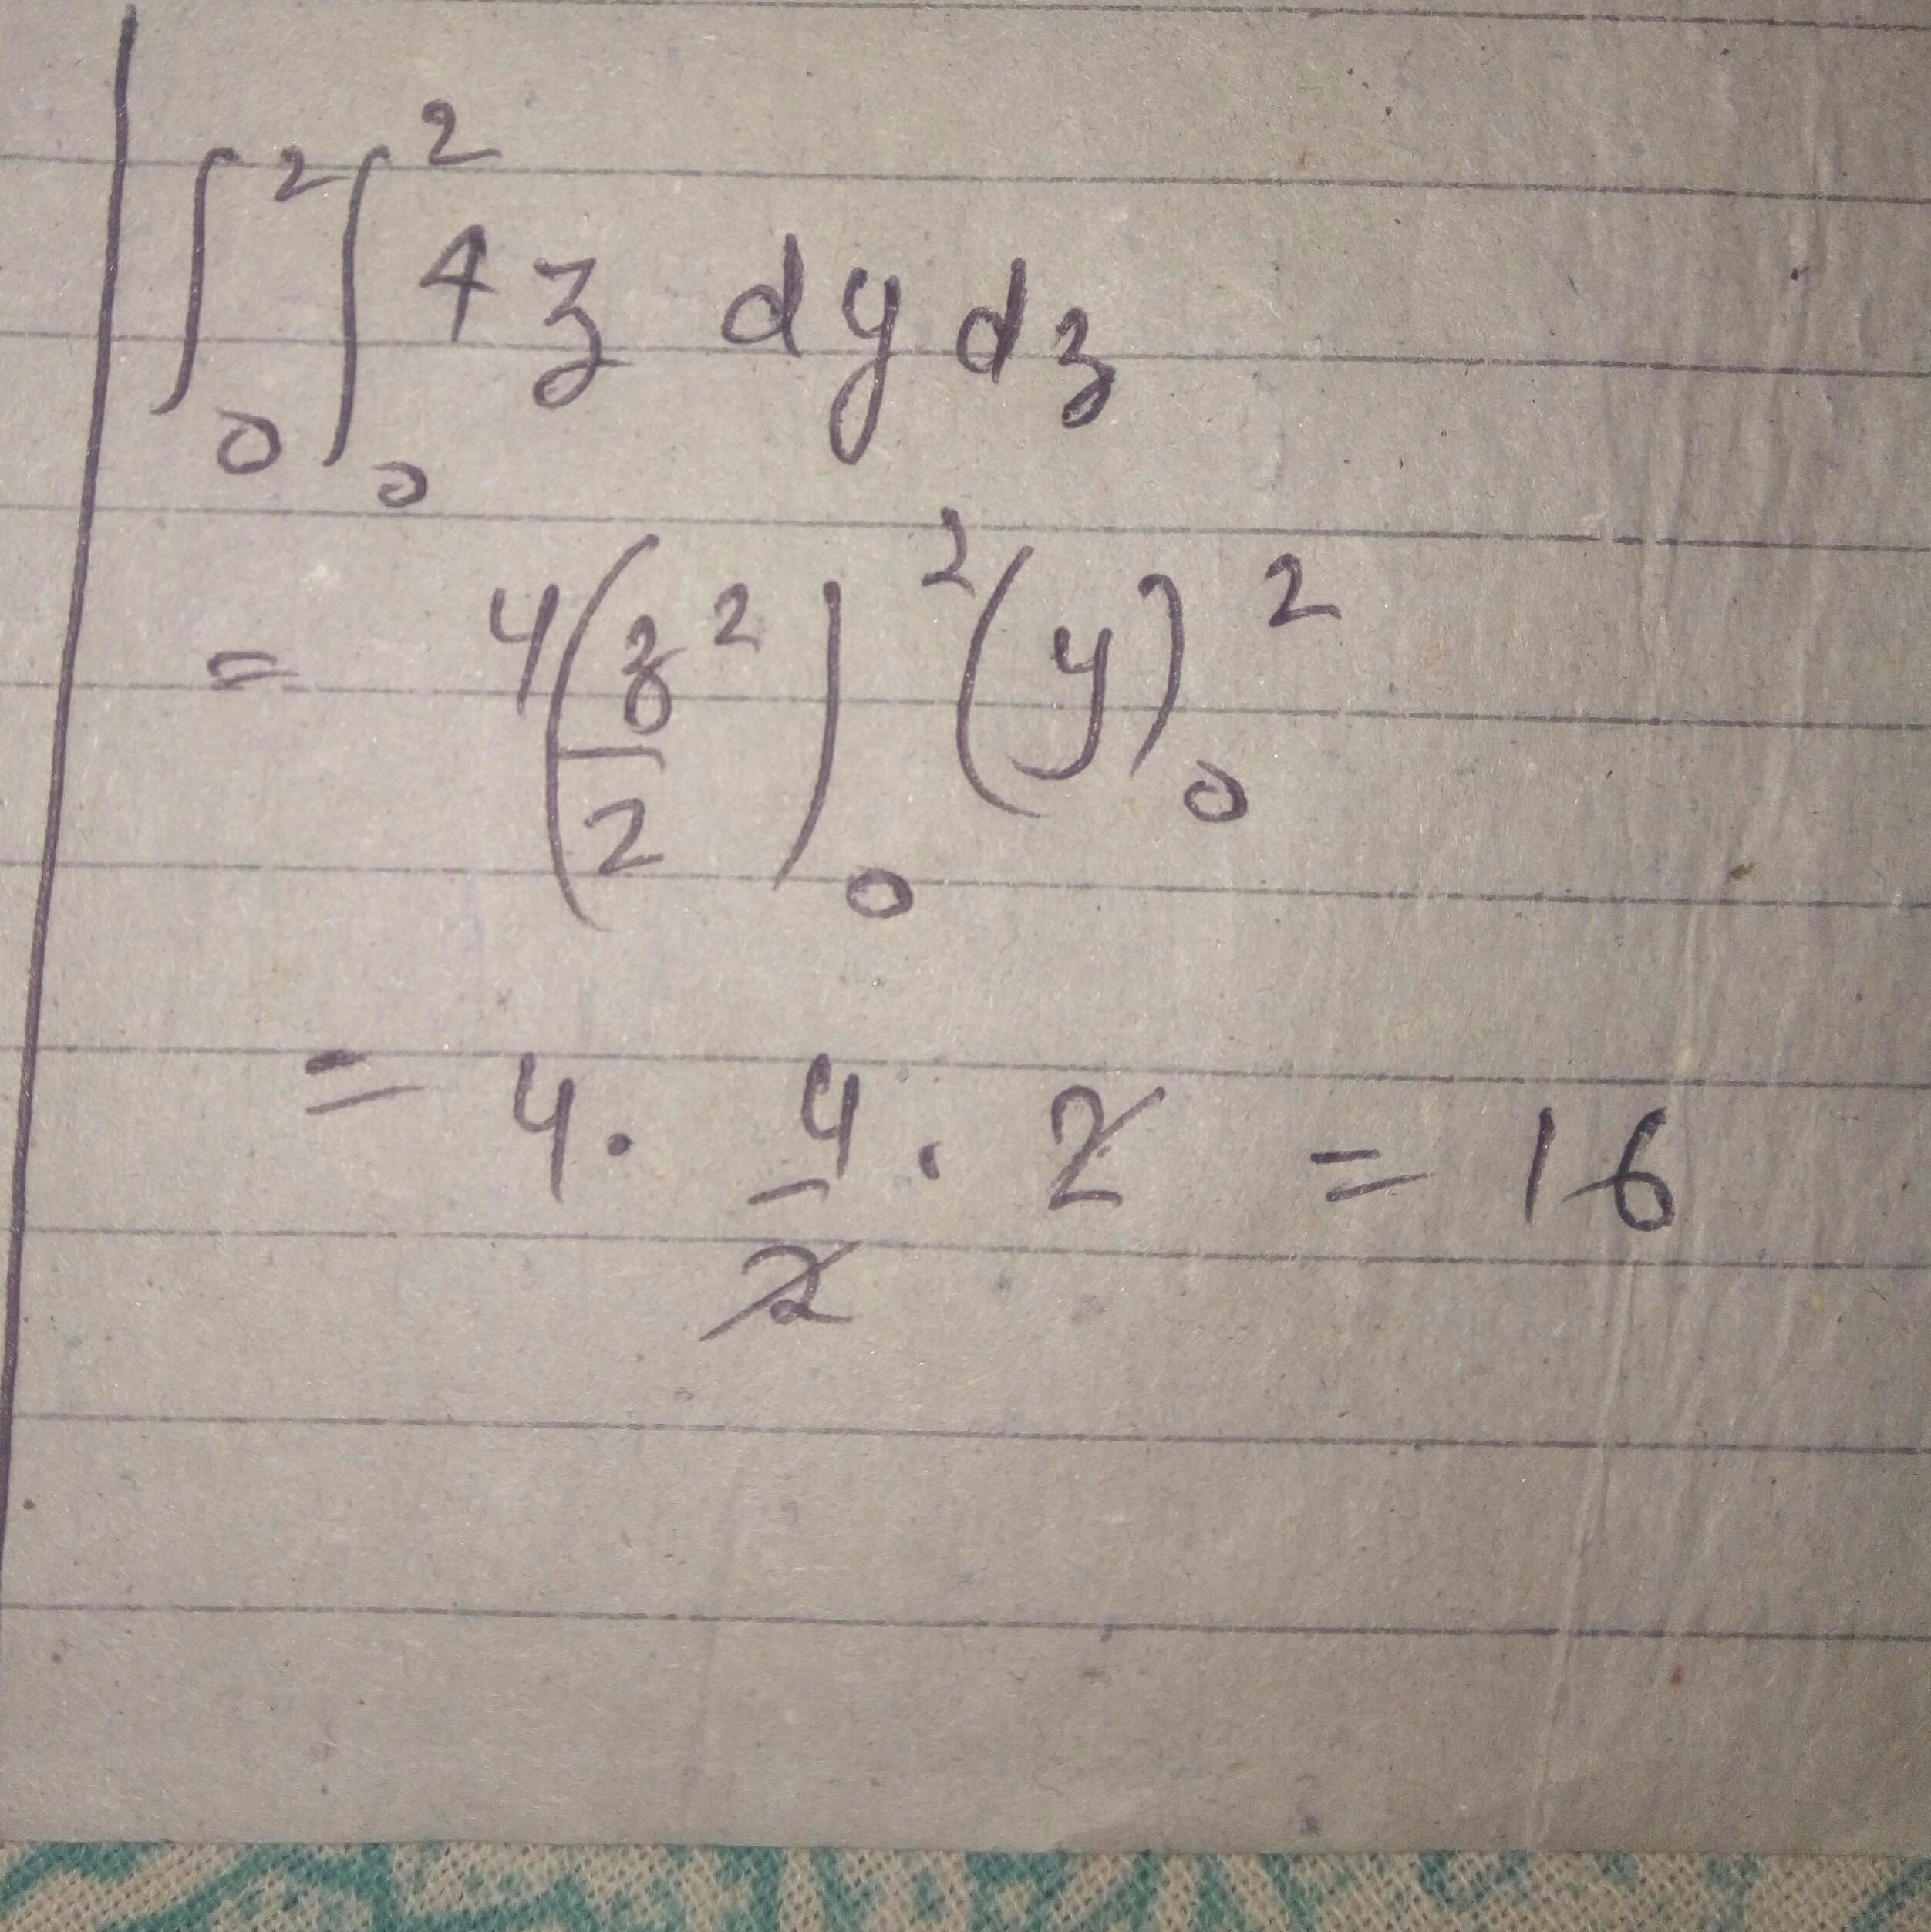 ∫₀² ∫₀² 4z dy dz
= 4(z²/2)₀² (y)₀²
= 4 · 4/2 · 2 = 16